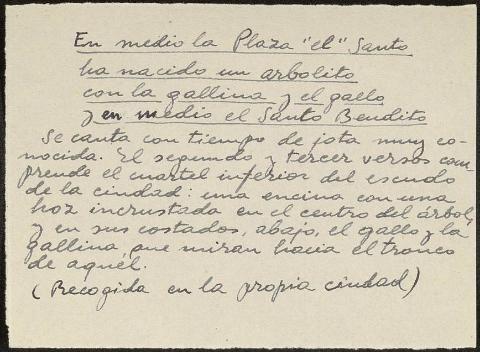 En medio la Plaza "el" Santo
ha nacido un arbolito
con la gallina y el gallo
y en medio el Santo Bendito
Se canta con tiempo de jota muy co-
nocida. El segundo y tercer versos com-
prende el cuartel inferior del escudo
de la ciudad: una encina con una
hoz incrustada en el centro del árbol,
y en sus costados, abajo, el gallo y la
gallina que miran hacia el tronco
de aquél.
(Recogida en la propia ciudad)